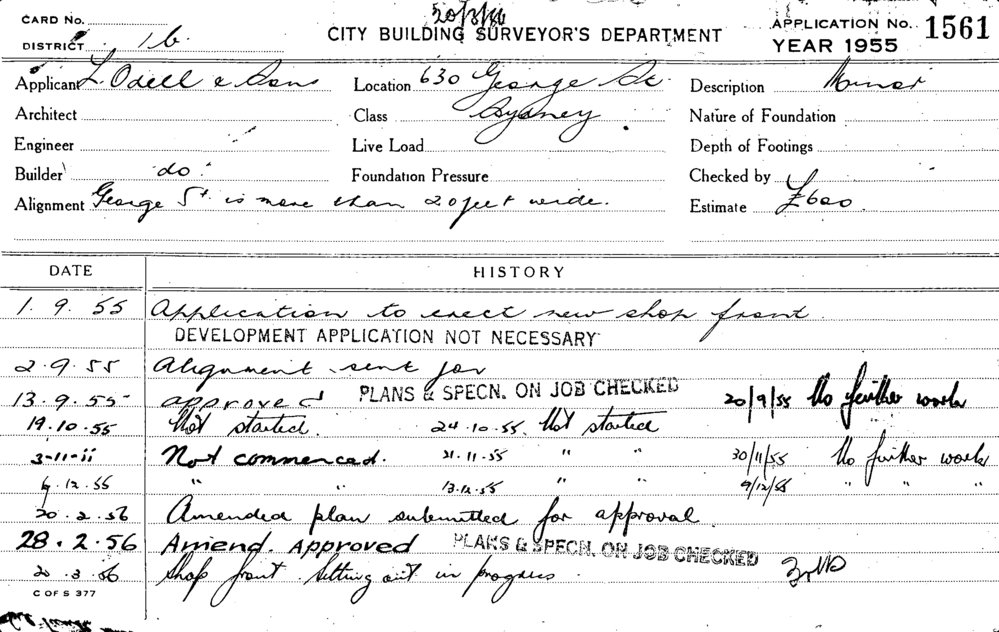 CARD No. 20/3/56 APPLICATION No. 1561
DISTRICT 1b. CITY BUILDING SURVEYOR'S DEPARTMENT YEAR 1955
Applicant L. Odell & Sons Location 630 George St. Description Minor
Architect Class Sydney Nature of Foundation
Engineer Live Load Depth of Footings
Builder do. Foundation Pressure Checked by
Alignment George St. is more than 20 feet wide. Estimate £600
DATE HISTORY
1. 9. 55 Application to erect new shop front.
DEVELOPMENT APPLICATION NOT NECESSARY
2.9.55 Alignment sent for
13.9.55 approved PLANS & SPECN. ON JOB CHECKED 20/9/55 No further work
19.10.55 Not started. 24.10.55. Not started
3-11-ii Not commenced. 21.11.55 " " 30/11/55 No further work
6.12.55 " " 13.12.55 " " 9/12/55 " " "
20.2.56 Amended plan submitted for approval.
28.2.56 Amend. Approved PLANS & SPECN. ON JOB CHECKED
20.3.56 Shop front setting out in progress.
C OF S 377